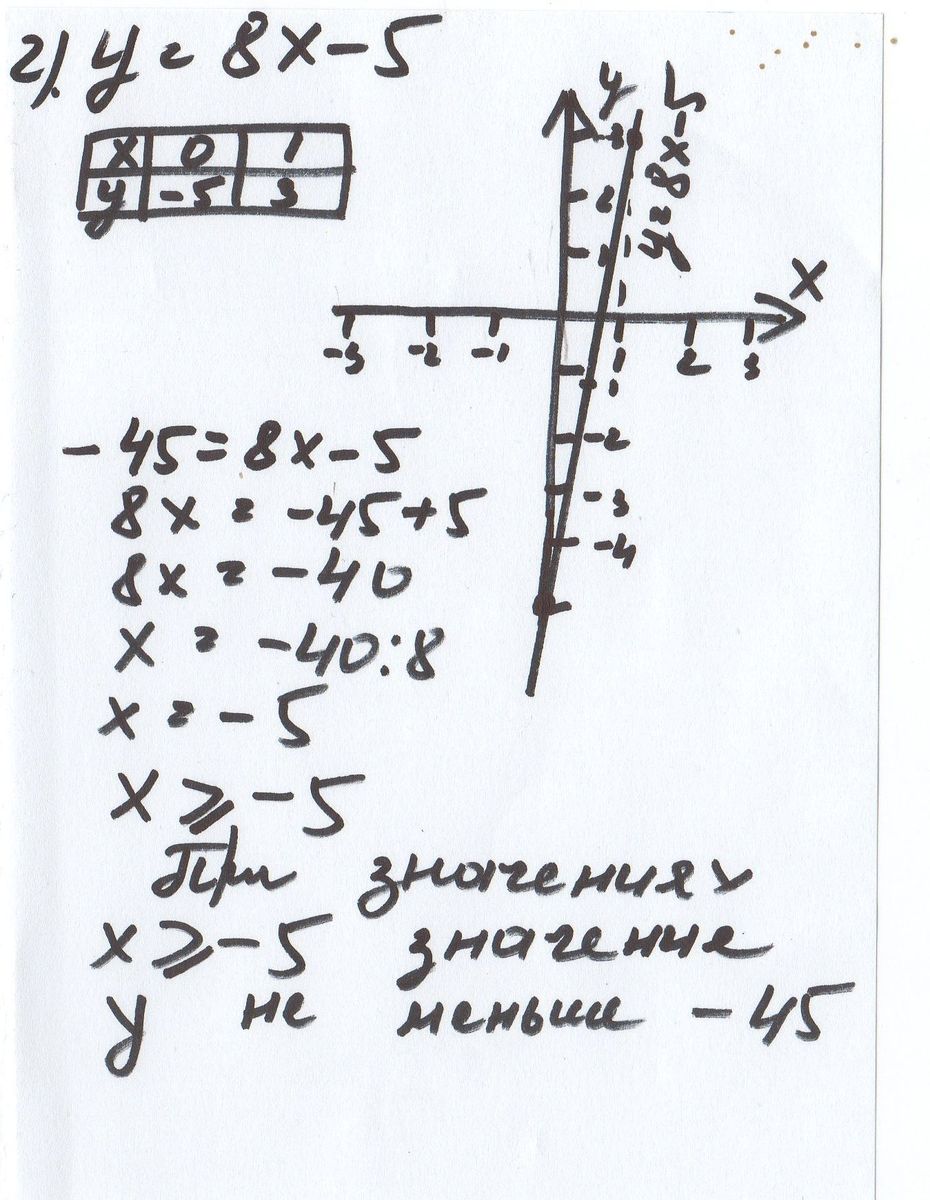 2). y = 8x - 5
x 0 1
y -5 3
y
3
2
1
y = 8x - 5
x
-3 -2 -1 1 2 3
-1
-2
-3
-4
-45 = 8x - 5
8x = -45 + 5
8x = -40
x = -40 : 8
x = -5
x ⩾ -5
При значениях
x ⩾ -5 значение
y не меньше -45